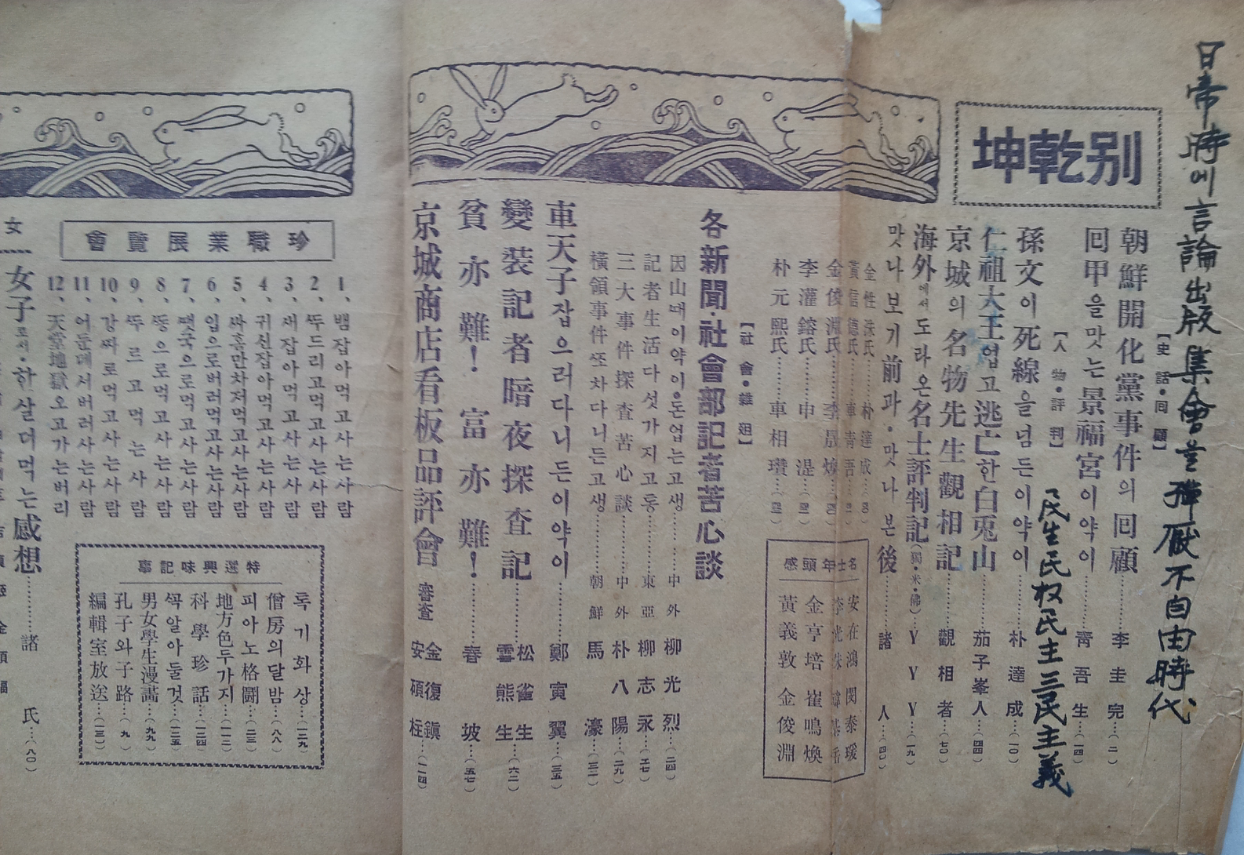 日帝時에 言論出版 集會를 彈厭 不自由時代
別乾坤
【史話•回顧】
朝鮮開化黨事件의 回顧…李圭完…(二)
回甲을맛는景福宮이약이…靑吾生…(一四)
【人物•評判】
民生民权民主三民主義
孫文이死線을넘든이약이…朴達成…(一〇)
仁祖大王업고逃亡한白兎山…茄子峯人…(四四)
京城의名物先生觀相記…觀相者…(七〇)
海外에서도라온名士評判記(獨•米•佛)…YYY…(一九)
맛나보기前과•맛나본後…諸人…(四〇)
金俊淵氏…李晸煥
李灌鎔氏…申湜
朴元熙氏…車相瓚
名士年頭感
安在鴻 閔泰瑗
金亨培 崔鳴煥
黃義敦 金俊淵
【社會•雜俎】
各新聞•社會部記者苦心談
因山때이약이•돈업는고생…中外 柳光烈…(二四)
記者生活다섯가지고동…東亞 柳志永…(二七)
三大事件探査苦心談…中外 朴八陽…(二九)
橫領事件쪼차다니든고생…朝鮮 馬濠…(三一)
車天子잡으러다니든이약이…鄭寅翼…(三五)
變裝記者暗夜探査記…松雀生 雲熊生…(六二)
貧亦難! 富亦難!…春坡…(五七)
京城商店看板品評會 審査 金復鎭 安碩柱…(一一四)
珍職業展覽會
1、뱀잡아먹고사는사람
2、뚜드리고먹고사는사람
3、새잡아먹고사는사람
4、귀신잡아먹고사는사람
5、싸홈만차저먹고사는사람
6、입으로버러먹고사는사람
7、땟국으로먹고사는사람
8、똥으로먹고사는사람
9、뚜르고먹는사람
10、강짜로먹고사는사람
11、어둔데서버러사는사람
12、天堂地獄오고가는버리
特選興味記事
록기화상…(一二九)
僧房의달밤…(八八)
피아노格鬪…(二三)
地方色두가지…(一一二)
科學珍話…(一二四)
꼭알아둘것…(一三五)
男女學生漫畵…(九九)
孔子와子路…(九)
編輯室放送…(一三)
女
女子로서•한살더먹는感想…諸氏…(八〇)